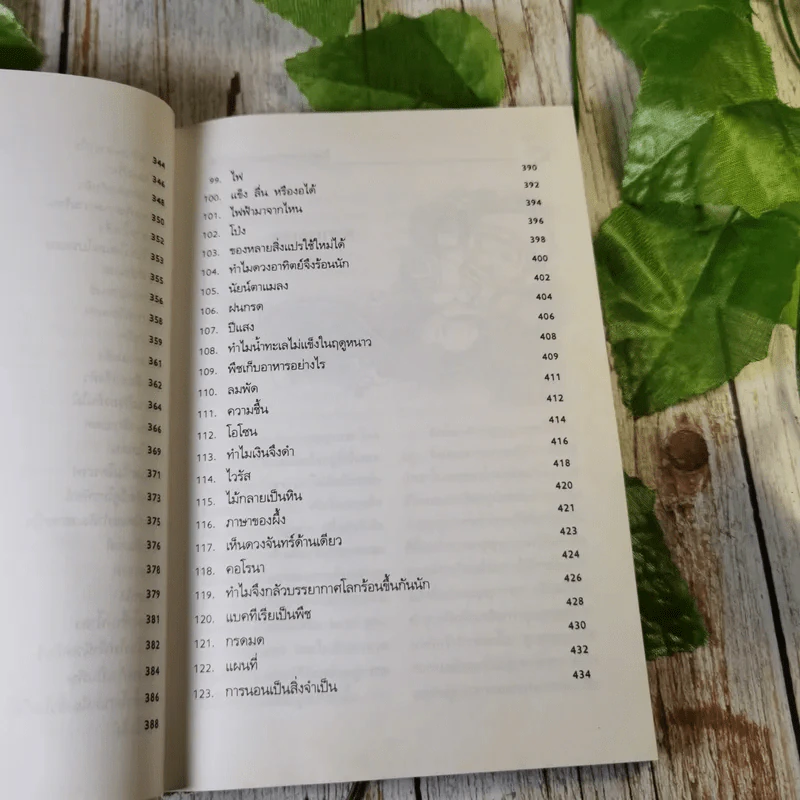 344
346
348
350
352
353
355
356
358
359
361
362
364
366
371
373
375
376
378
379
381
382
384
386
388
99. ไฟ 390
100. แข็ง ลื่น หรืองอได้ 392
101. ไฟฟ้ามาจากไหน 394
102. โป่ง 396
103. ของหลายสิ่งแปรใช้ใหม่ได้ 398
104. ทำไมดวงอาทิตย์จึงร้อนนัก 400
105. นัยน์ตาแมลง 402
106. ฝนกรด 404
107. ปีแสง 406
108. ทำไมน้ำทะเลไม่แข็งในฤดูหนาว 408
109. พืชเก็บอาหารอย่างไร 409
110. ลมพัด 411
111. ความชื้น 412
112. โอโซน 414
113. ทำไมเงินจึงดำ 416
114. ไวรัส 418
115. ไม้กลายเป็นหิน 420
116. ภาษาของผึ้ง 421
117. เห็นดวงจันทร์ด้านเดียว 423
118. คอโรนา 424
119. ทำไมจึงกลัวบรรยากาศโลกร้อนขึ้นกันนัก 426
120. แบคทีเรียเป็นพืช 428
121. กรดมด 430
122. แผนที่ 432
123. การนอนเป็นสิ่งจำเป็น 434